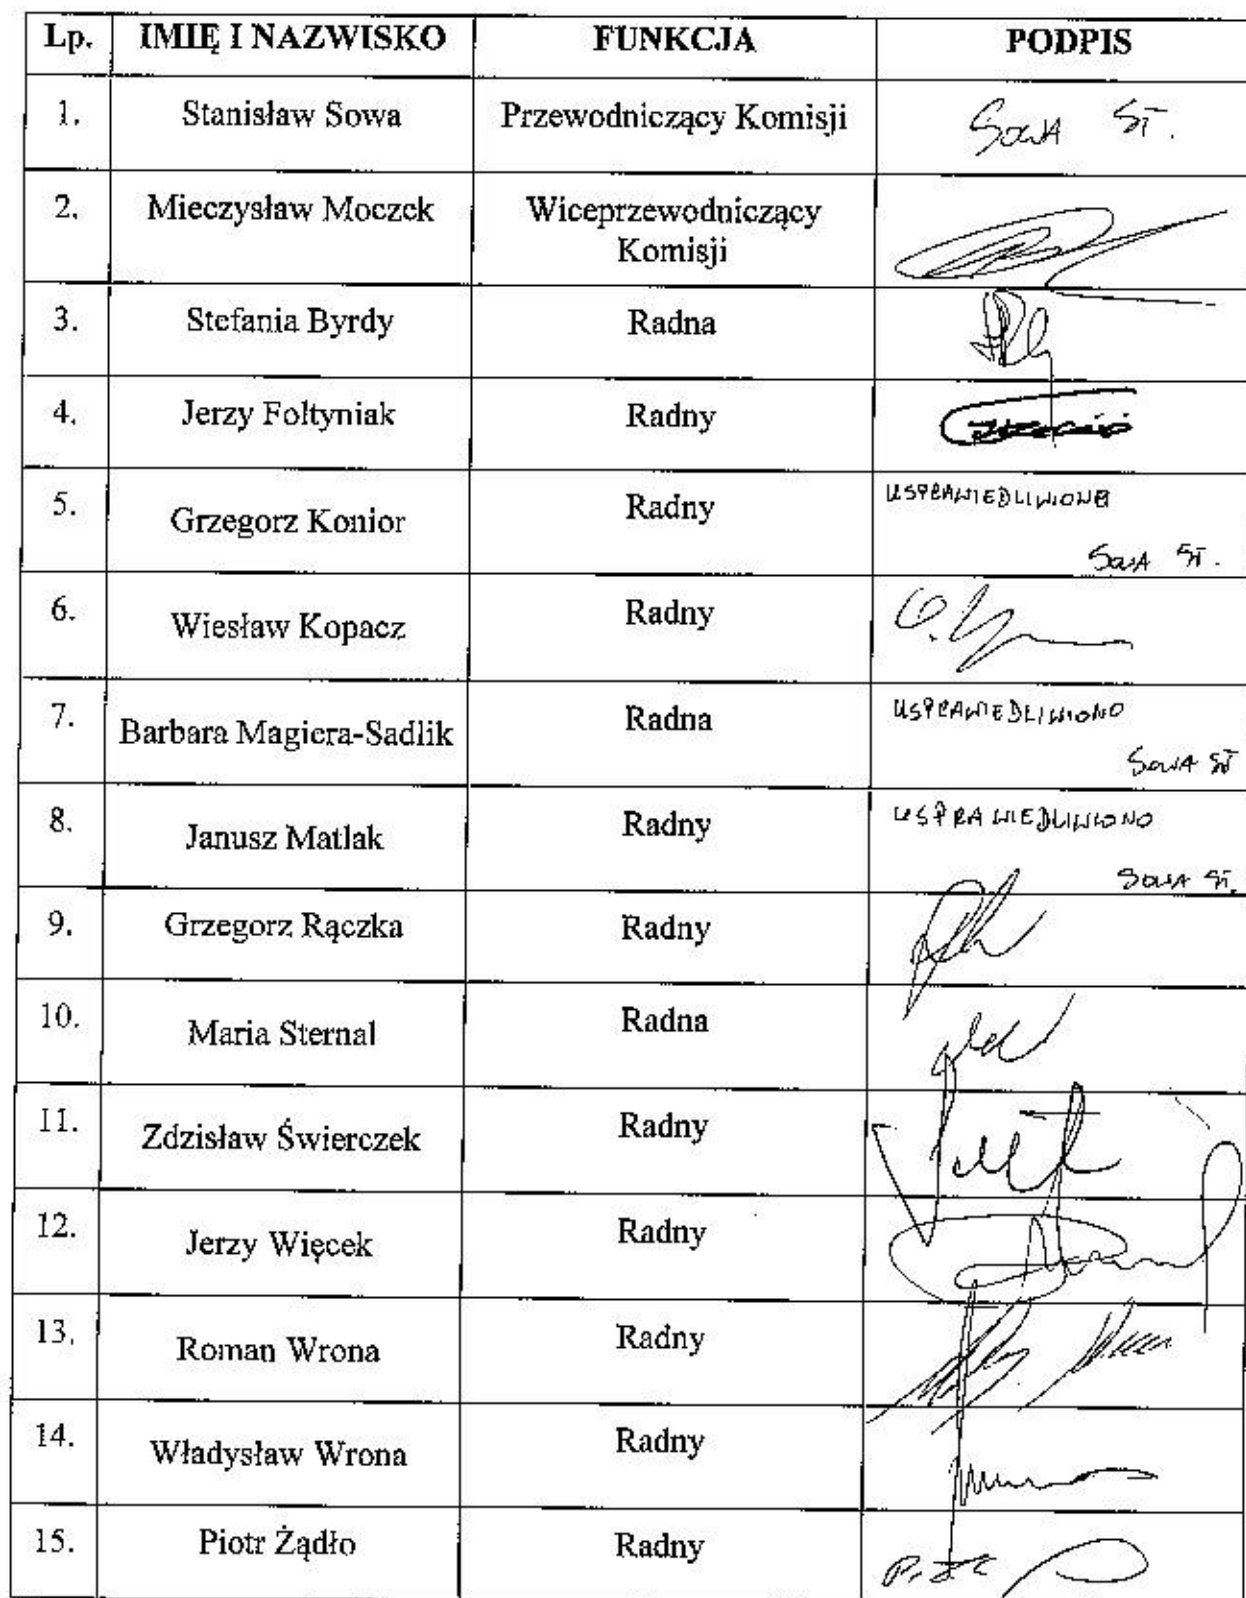 Lp. IMIĘ I NAZWISKO FUNKCJA PODPIS
1. Stanisław Sowa Przewodniczący Komisji Sowa St.
2. Mieczysław Moczek Wiceprzewodniczący
Komisji
3. Stefania Byrdy Radna
4. Jerzy Foltyniak Radny
5. Grzegorz Konior Radny USPRAWIEDLIWIONO
Sowa St.
6. Wiesław Kopacz Radny
7. Barbara Magiera-Sadlik Radna USPRAWIEDLIWIONO
Sowa St
8. Janusz Matlak Radny USPRAWIEDLIWIONO
Sowa St.
9. Grzegorz Rączka Radny
10. Maria Sternal Radna
11. Zdzisław Świerczek Radny
12. Jerzy Więcek Radny
13. Roman Wrona Radny
14. Władysław Wrona Radny
15. Piotr Żądło Radny